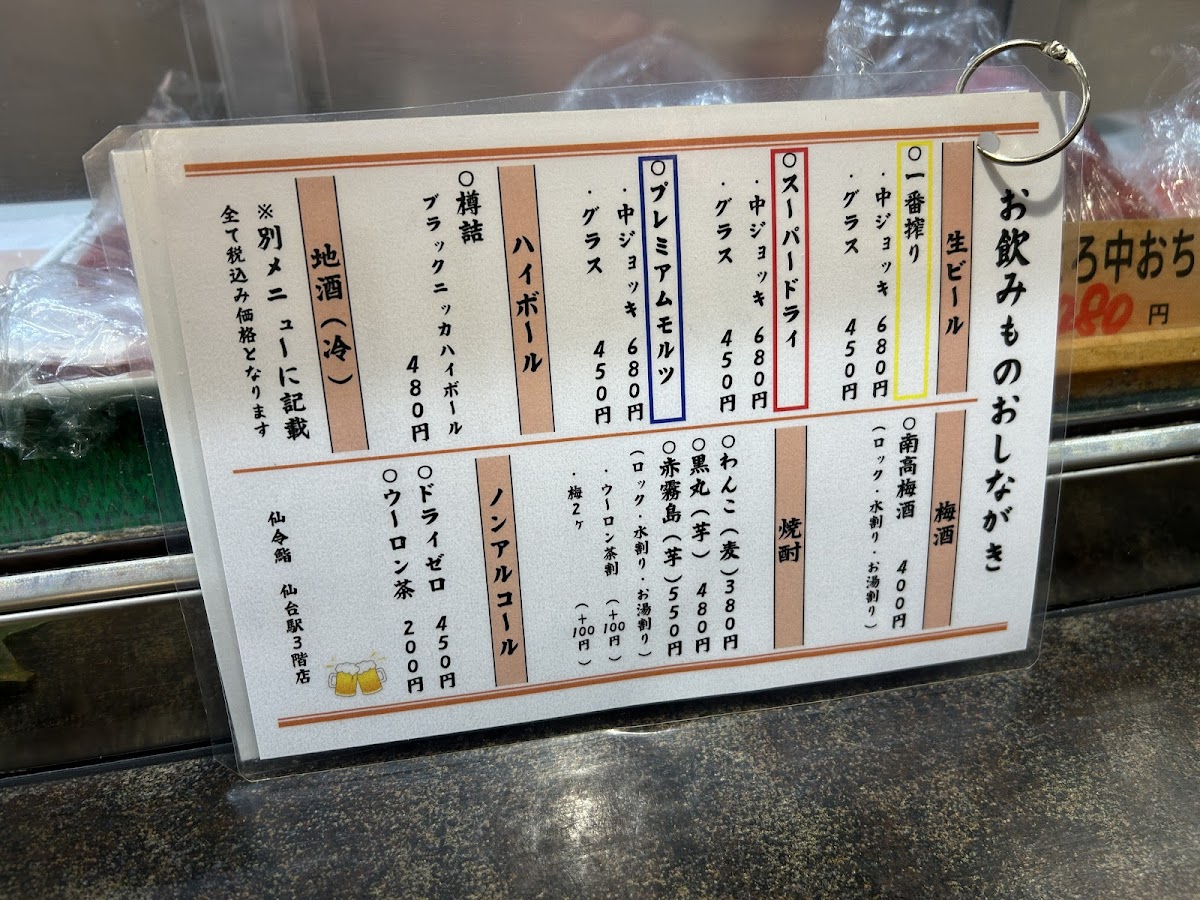 お飲みものおしながき
生ビール
○一番搾り
・中ジョッキ 680円
・グラス 450円
○スーパードライ
・中ジョッキ 680円
・グラス 450円
○プレミアムモルツ
・中ジョッキ 680円
・グラス 450円
ハイボール
○樽詰
ブラックニッカハイボール
480円
地酒(冷)
※別メニューに記載
全て税込み価格となります
梅酒
○南高梅酒 400円
(ロック・水割り・お湯割り)
焼酎
○わんこ(麦)380円
○黒丸(芋) 480円
○赤霧島(芋)550円
(ロック・水割り・お湯割り)
・ウーロン茶割 (+100円)
・梅2ヶ (+100円)
ノンアルコール
○ドライゼロ 450円
○ウーロン茶 200円
仙令鮨 仙台駅3階店
ろ中おち
80円